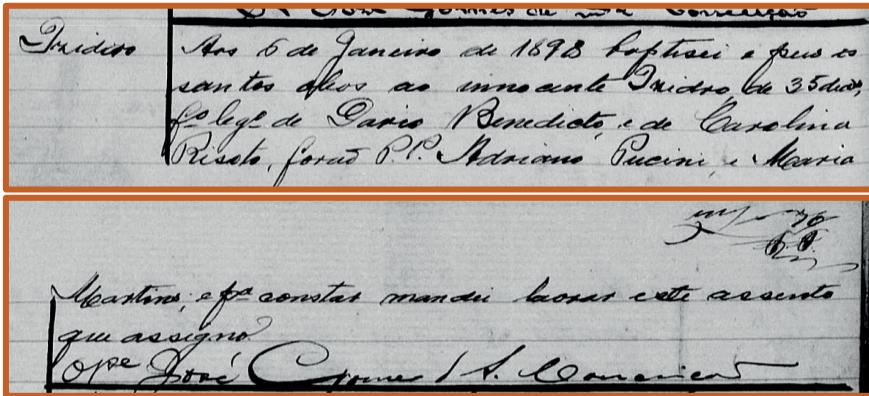 José Gomes de Sá Conceição
Izidro Aos 6 de Janeiro de 1898 baptisei e puz os
santos oleos ao innocente Izidro de 35 dias,
fº legº de Dario Benedicto, e de Carolina
Risoto, forão P.P. Adriano Pucini, e Maria
Martins, e pª constar mandei lavrar este assento
que assigno.
O Pe José Gomes